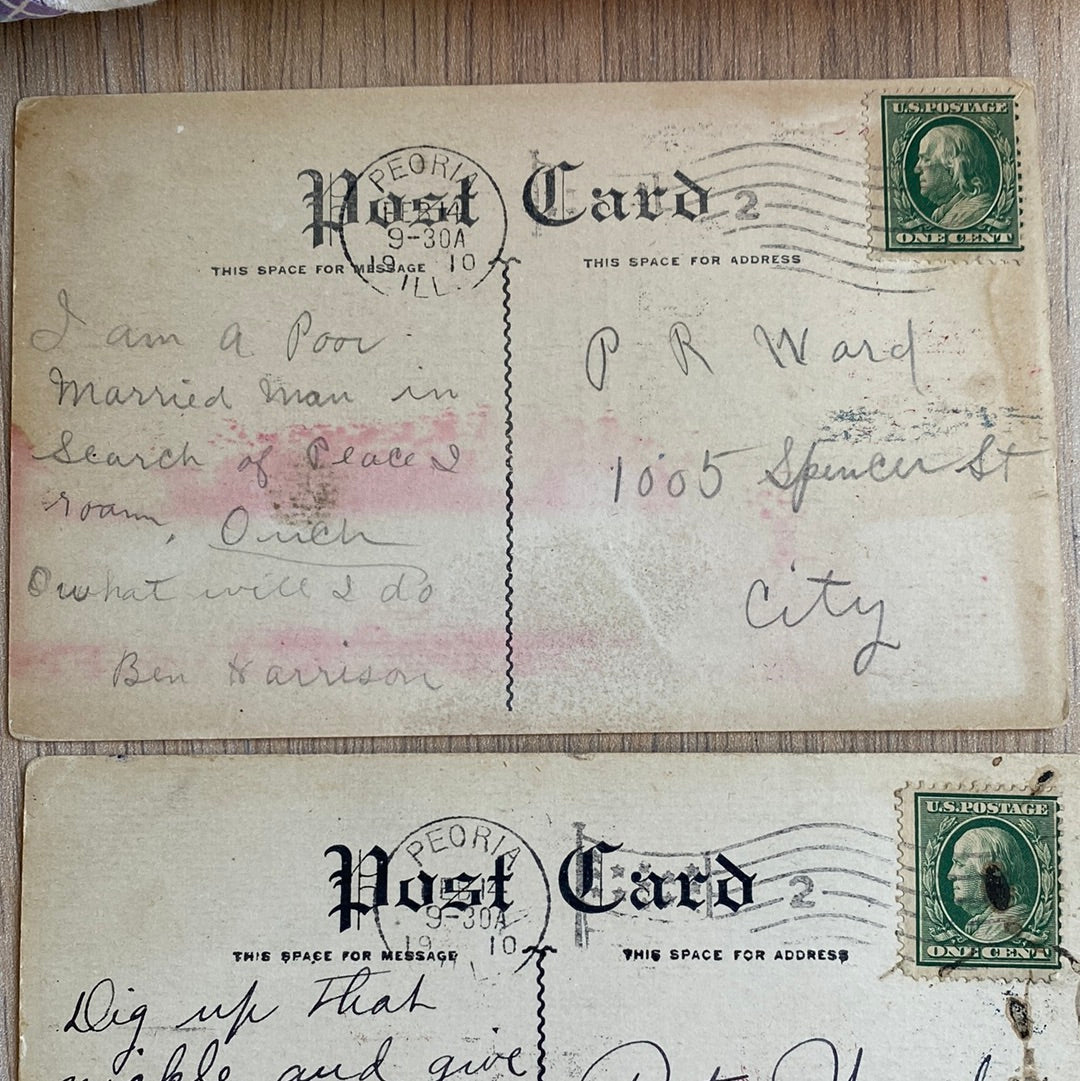 U.S. POSTAGE
PEORIA
Post Card 2
FEB 14
9-30A
19 10
ILL.
ONE CENT
THIS SPACE FOR MESSAGE
THIS SPACE FOR ADDRESS
I am a Poor
Married Man in
Search of Peace I
roam, Ouch
O what will I do
Ben Harrison
P R Ward
1005 Spencer St
City
U.S. POSTAGE
PEORIA
Post Card 2
9-30A
19 10
ONE CENT
THIS SPACE FOR MESSAGE
THIS SPACE FOR ADDRESS
Dig up that
and give